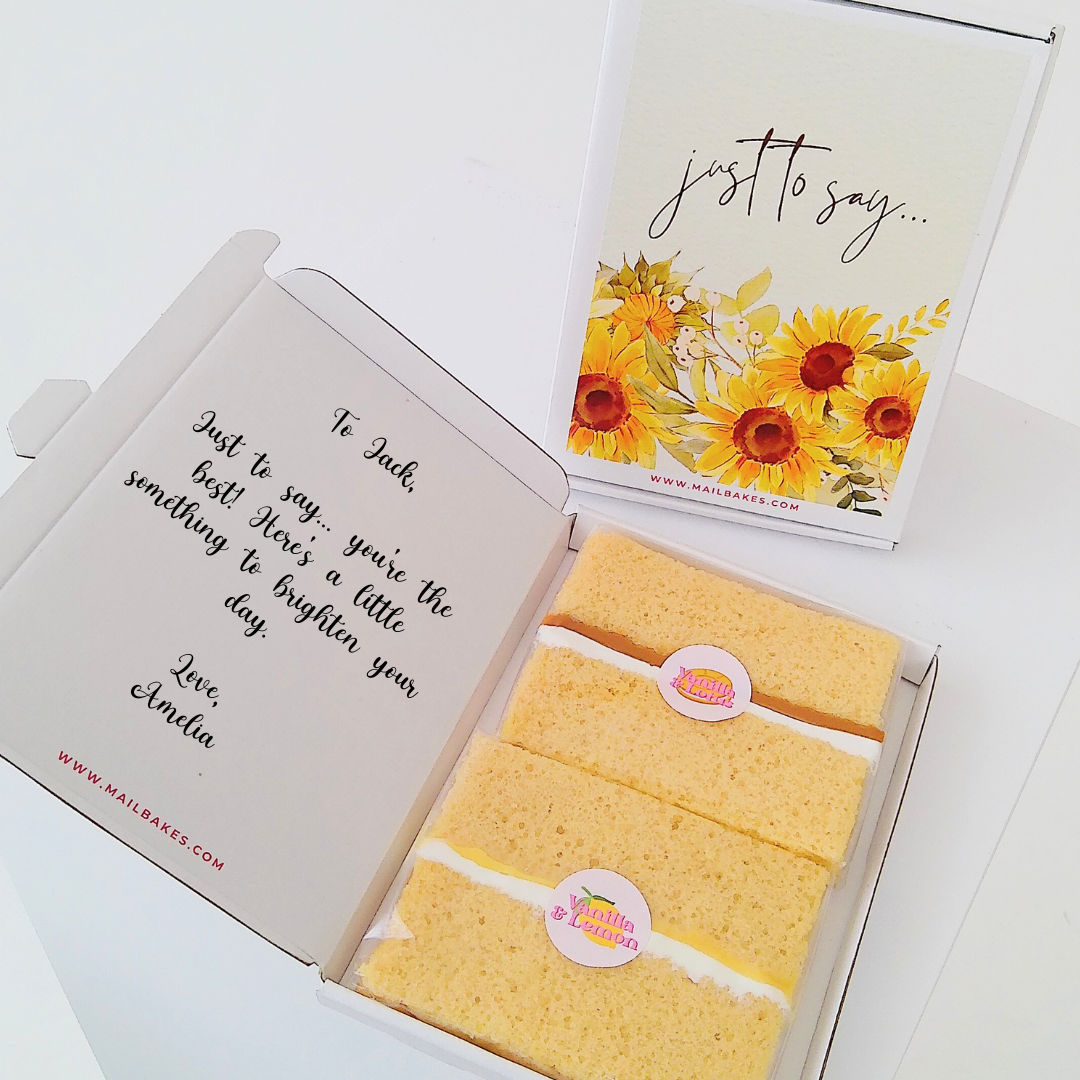 just to say...
WWW.MAILBAKES.COM
To Jack,
Just to say... you're the
best! Here's a little
something to brighten your
day.
Love,
Amelia
WWW.MAILBAKES.COM
Vanilla
&
Vanilla
& Lemon